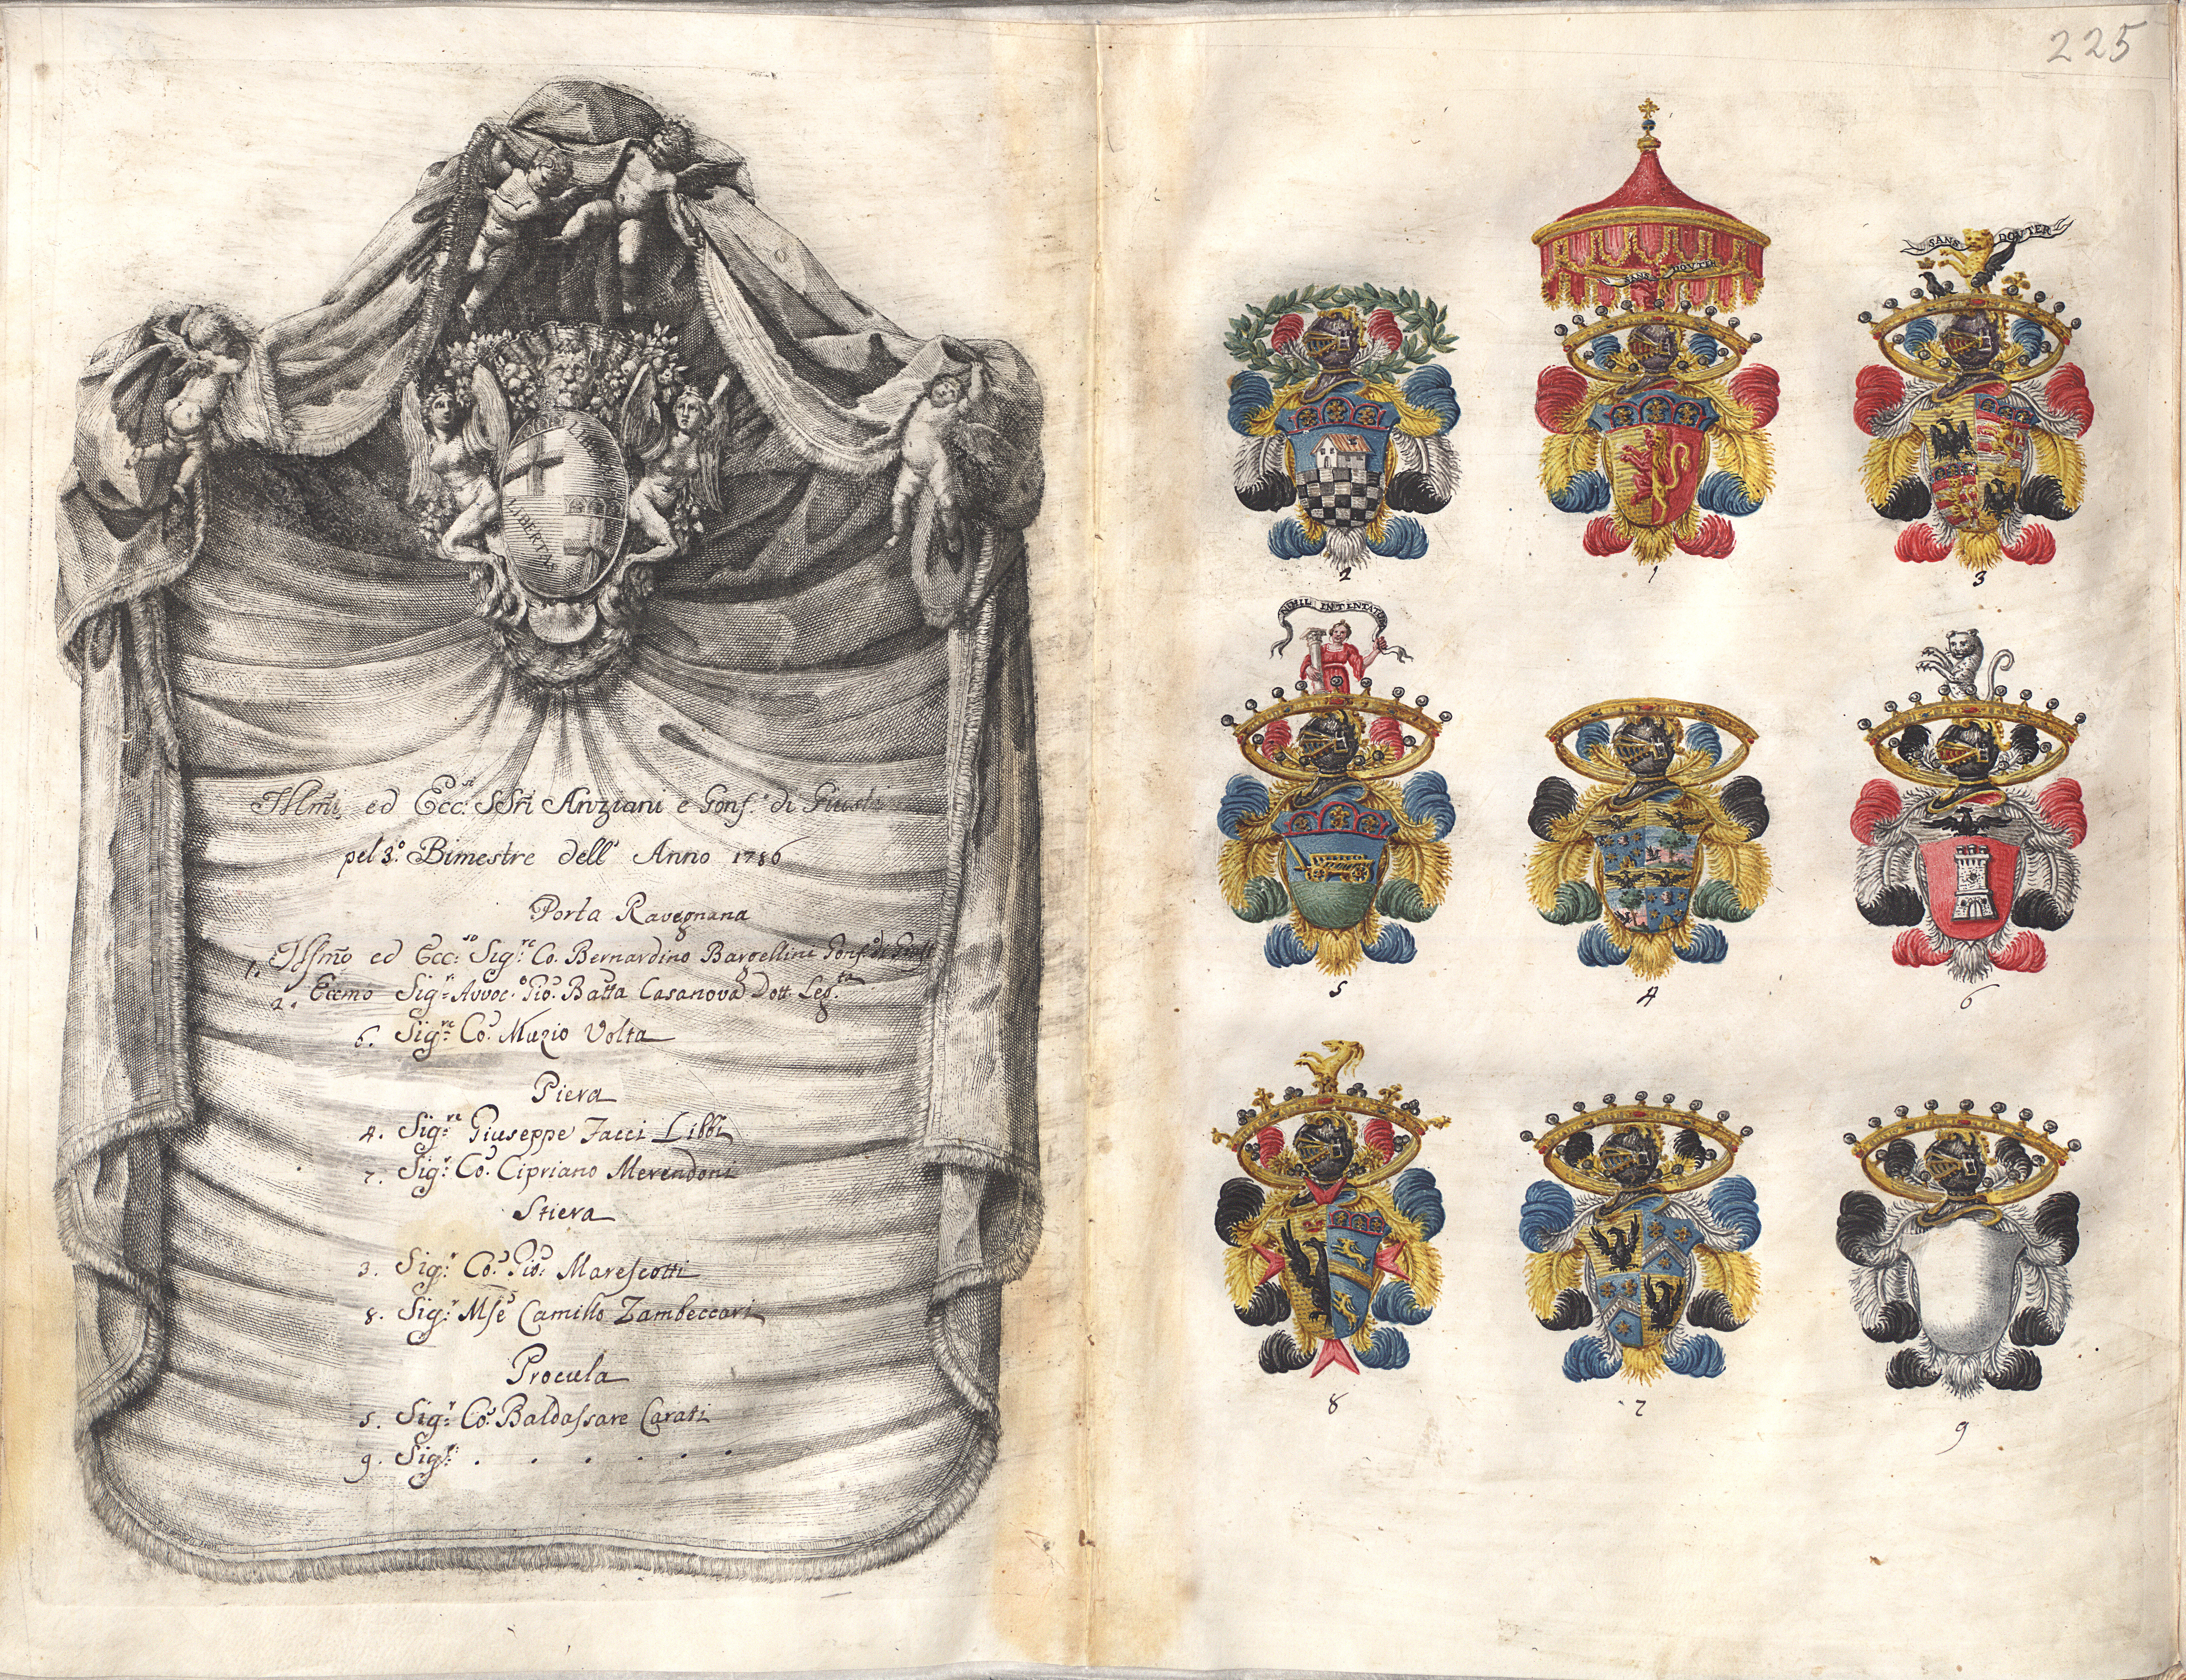 LIBERTAS
LIBERTAS
Illmi, ed Ecc.si SSri Anziani e Gonf.e di Giusti
pel 3.o Bimestre dell' Anno 1786
Porta Ravegnana
1. Illmo ed Ecc:so Sig:re Co. Bernardino Bargellini Gonf:e di Giust
2. Eccmo Sig:r Avvoc.o Gio: Batta Casanova Dott. Leg.ta
6. Sig:re Co: Muzio Volta
Piera
4. Sig:re Giuseppe Jacci Libbi
7. Sig:r Co: Cipriano Merendoni
Stiera
3. Sig:r Co: Gio: Marescotti
8. Sig:r Mse Camillo Zambeccari
Procula
5. Sig:r Co: Baldassare Carati
9. Sig:r . . . . . .
225
SANS DOVTER
SANS DOVTER
2
1
3
NIHIL INTENTATU
5
4
6
8
7
9